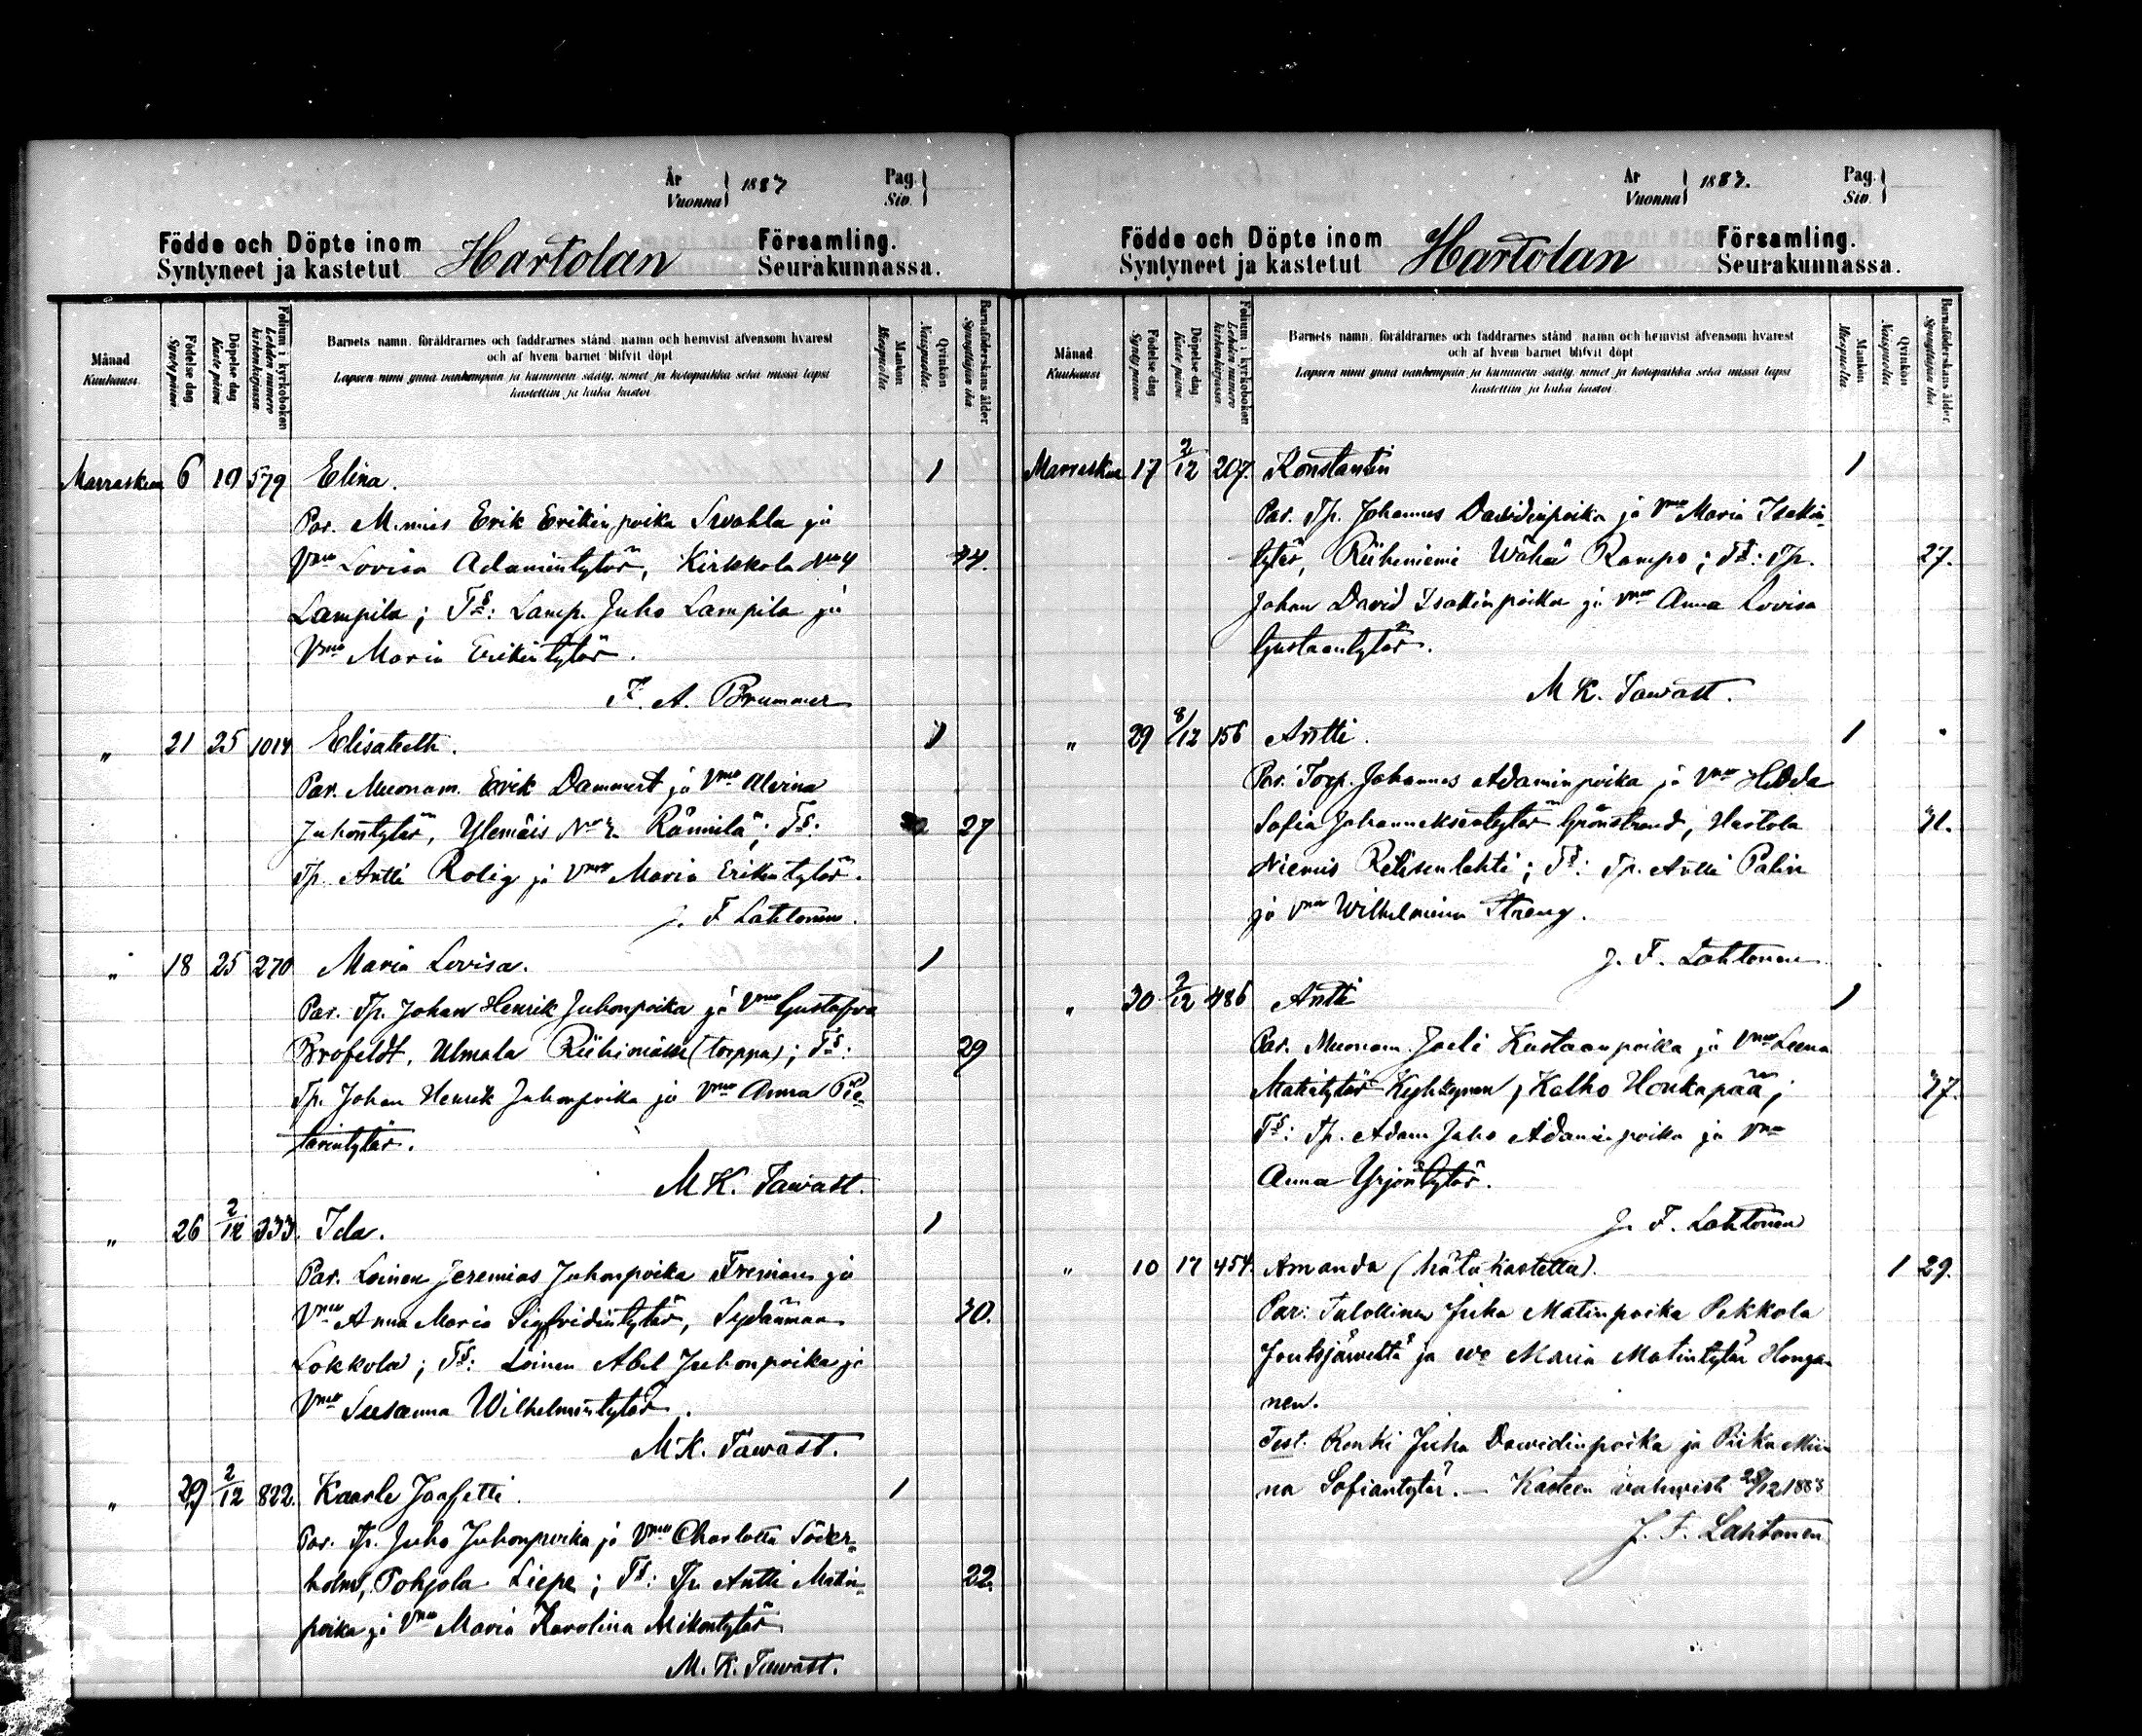 År
Vuonna
1883
Pag.
Siv.
Födde och Döpte inom
Syntyneet ja kastetut
Hartolan
Församling.
Seurakunnassa.
Månad
Kuukausi.
Födelse dag
Syntypäivä.
Döpelse dag
Kastepäivä
Folium i kyrkoboken
Lehden numero kirkonkirjassa.
Barnets namn, föräldrarnes och faddrarnes stånd, namn och hemvist äfvensom hvarest
och af hvem barnet blifvit döpt
Lapsen nimi ynnä vanhempain ja kummein sääty, nimet ja kotopaikka sekä missä lapsi
kastettiin ja kuka kastoi.
Mankön
Miespuolia.
Qvinkön
Naispuolia.
Barnaföderskans ålder
Synnyttäjän ikä
Marraskuu 6 10 579 Elina. 1
Par. M.mies Erik Erikinpoika Siwahla ja
Vmo Lovisa Adamintytär, Kirkkola No 4 44.
Lampila; Ts: Lamp. Juho Lampila ja
Vmo Maria Erikintytär.
F. A. Brummer
" 21 25 1014 Elisabeth. 1
Par. Muonam. Erik Dammert ja Vmo Alvina
Juhontytär, Ylemäis No 2 Rämilä; Ts: 27
Tp. Antti Rolig ja Vmo Maria Erikintytär.
J. F. Lahtonen.
" 18 25 270 Maria Lovisa. 1
Par. Tp. Johan Henrik Juhonpoika ja Vmo Gustafva
Brofeldt, Ulmala Riihimäki (torppa); Ts: 29
Tp. Johan Henrik Juhonpoika ja Vmo Anna Pie-
tarintytär.
M K. Tawast.
" 26 2/12 333. Ida. 1
Par. Loinen Jeremias Juhonpoika Freiman ja
Vmo Anna Maria Sigfridintytär, Sydänmaa 30.
Lokkola; Ts: Loinen Abel Juhonpoika ja
Vmo Susanna Wilhelmintytär.
M K. Tawast.
" 29 2/12 822. Kaarle Jaafetti. 1
Par. Tp. Juho Juhonpoika ja Vmo Charlotta Söder-
holm, Pohjola Liepe; Ts: Tp. Antti Matin-
22.
poika ja Vmo Maria Karolina Mikontytär
M. K. Tawast.
År
Vuonna
1883.
Pag.
Siv.
Födde och Döpte inom
Syntyneet ja kastetut
Hartolan
Församling.
Seurakunnassa.
Månad
Kuukausi
Födelse dag
Syntypäivä.
Döpelse dag
Kastepäivä.
Folium i kyrkoboken
Lehden numero kirkonkirjassa.
Barnets namn, föräldrarnes och faddrarnes stånd, namn och hemvist äfvensom hvarest
och af hvem barnet blifvit döpt
Lapsen nimi ynnä vanhempain ja kummein sääty, nimet ja kotopaikka sekä missä lapsi
kastettiin ja kuka kastoi.
Mankön
Miespuolia.
Qvinkön
Naispuolia.
Barnaföderskans ålder
Synnyttäjän ikä.
Marraskuu 17 2/12 207. Konstantin 1
Par. Tp. Johannes Davidinpoika ja Vmo Maria Isakin-
tytär, Riiheniemi Wähä Rampo; Ts: Tp. 27.
Johan David Isakinpoika ja Vmo Anna Lovisa
Gustaantytär.
M K. Tawast.
" 29 8/12 156 Antti. 1
Par. Torp. Johannes Adaminpoika ja Vmo Hedda
Sofia Johanneksentytär Grönstrand, Hartola 31.
Niemis Relisenlahti; Ts: Tp. Antti Palin
ja Vmo Wilhelmina Streng.
J. F. Lahtonen
" 30 2/12 486 Antti 1
Par. Muonam. Joeli Kustaanpoika ja Vmo Leena
Matintytär Kyhkynen, Kalho Honkapää; 37.
Ts: Tp. Adam Juho Adaminpoika ja Vmo
Anna Yrjöntytär.
J. F. Lahtonen
" 10 17 454. Amanda (hätäkastettu). 1 29.
Par: Talollinen Juha Matinpoika Pekkola
Joutsjärveltä ja wo Maria Matintytär Honga-
nen.
Test. Renki Juha Dawidinpoika ja Piika Mii-
na Sofiantytär. — Kasteen vahwisti 28/12 1883
J. F. Lahtonen